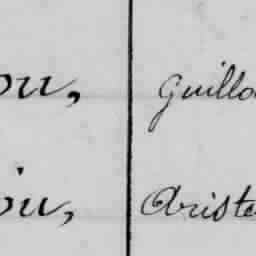 ou, Guillo
iu, Ariste